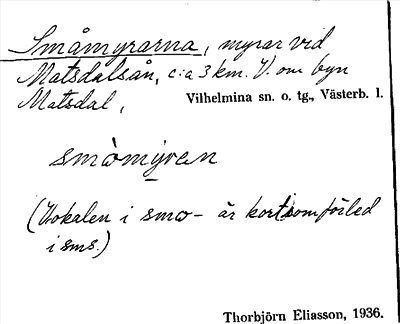 Småmyrarna, myrar vid
Matsdalsån, c:a 3 km. V. om byn
Matsdal,
Vilhelmina sn. o. tg., Västerb. l.
småmýran
(Vokalen i smo- är kort som förled
i sms.)
Thorbjörn Eliasson, 1936.